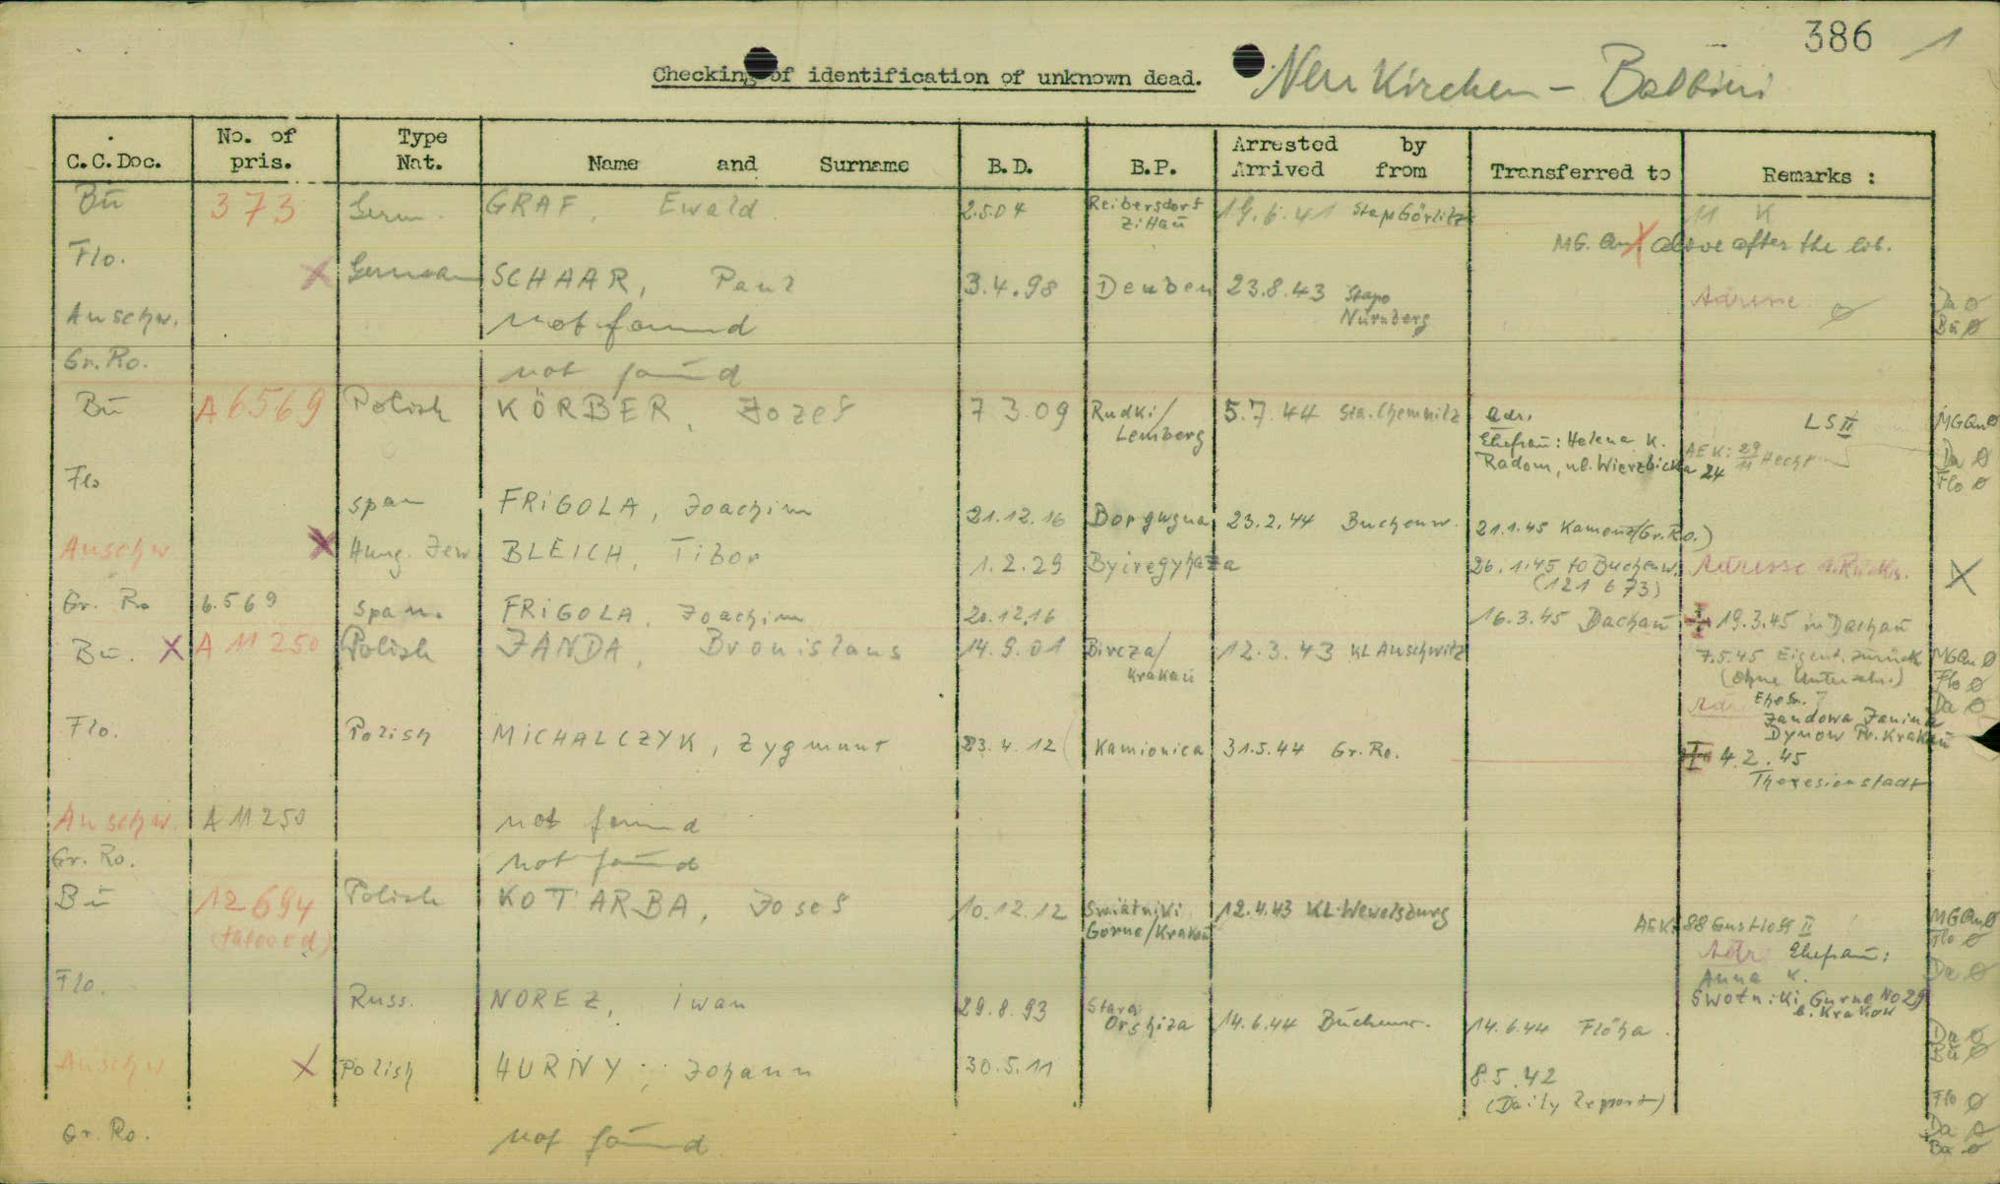 386 1
Checking of identification of unknown dead. Neukirchen - Balbini
C.C.Doc. No. of pris. Type Nat. Name and Surname B.D. B.P. Arrested by Arrived from Transferred to Remarks :
Bū 373 Germ. GRAF, Ewald 2.5.04 Reibersdorf Zittau 19.6.41 Stapo Görlitz 11 K
MG. above after the lib.
Flo. X German SCHAAR, Paul 3.4.98 Deuben 23.8.43 Stapo Nürnberg Adresse Ø Da Ø Bū Ø
Auschw. not found
Gr.Ro. not found
Bū A 6569 Polish KÖRBER, Jozef 7.3.09 Rudki/ Lemberg 5.7.44 Sta. Chemnitz Adr. LS II MGQu Ø
Ehefrau: Helena K.
Radom, ul. Wierzbicka 24 AEK: 29/11 Da Ø
Flo Ø
Flo span FRIGOLA, Joachim 21.12.16 23.2.44 Buchenw. 21.1.45 Kamenz(Gr.Ro.)
Auschw X Hung. Jew BLEICH, Tibor 1.2.29 Byiregyhaza 26.1.45 to Buchenw. (121 673) Adresse X
Gr. Ro 6.569 Span. FRIGOLA, Joachim 20.12.16 16.3.45 Dachau 19.3.45 in Dachau
Bū. X A 11250 Polish JANDA, Bronislaus 14.9.01 Bircza/ Krakau 12.3.43 KL Auschwitz 7.5.45 Eigent. zurück MGQu Ø
(ohne Unterschr.) Flo Ø
Adr. Ehefr. Da Ø
Jandowa Janina
Dynow Kr. Krakau
Flo. Polish MICHALCZYK, Zygmunt 23.4.12 Kamionica 31.5.44 Gr.Ro. 4.2.45
Theresienstadt
Auschw. A 11250 not found
Gr. Ro. not found
Bū 12694 (tatooed) Polish KOTARBA, Josef 10.12.12 Swiatniki Gorne/Krakau 12.4.43 KL-Wewelsburg AEK: 88 Gustloff II MGQu Ø
Flo Ø
Adr. Ehefrau:
Anna K. Da Ø
Swotniki Gurne No 29
b. Krakow
Flo. Russ. NOREZ, Iwan 29.8.93 Stara Orshiza 14.6.44 Buchenw. 14.6.44 Flöha Da Ø
Bū Ø
Auschw X Polish HURNY, Johann 30.5.11 8.5.42
(Daily Report) Flo Ø
Gr. Ro. not found Da Ø
Bū Ø